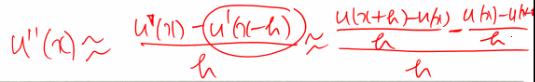 u''(x) ≈ (u'(x) - u'(x-h)) / h ≈ ((u(x+h)-u(x))/h - (u(x)-u(x-h))/h) / h